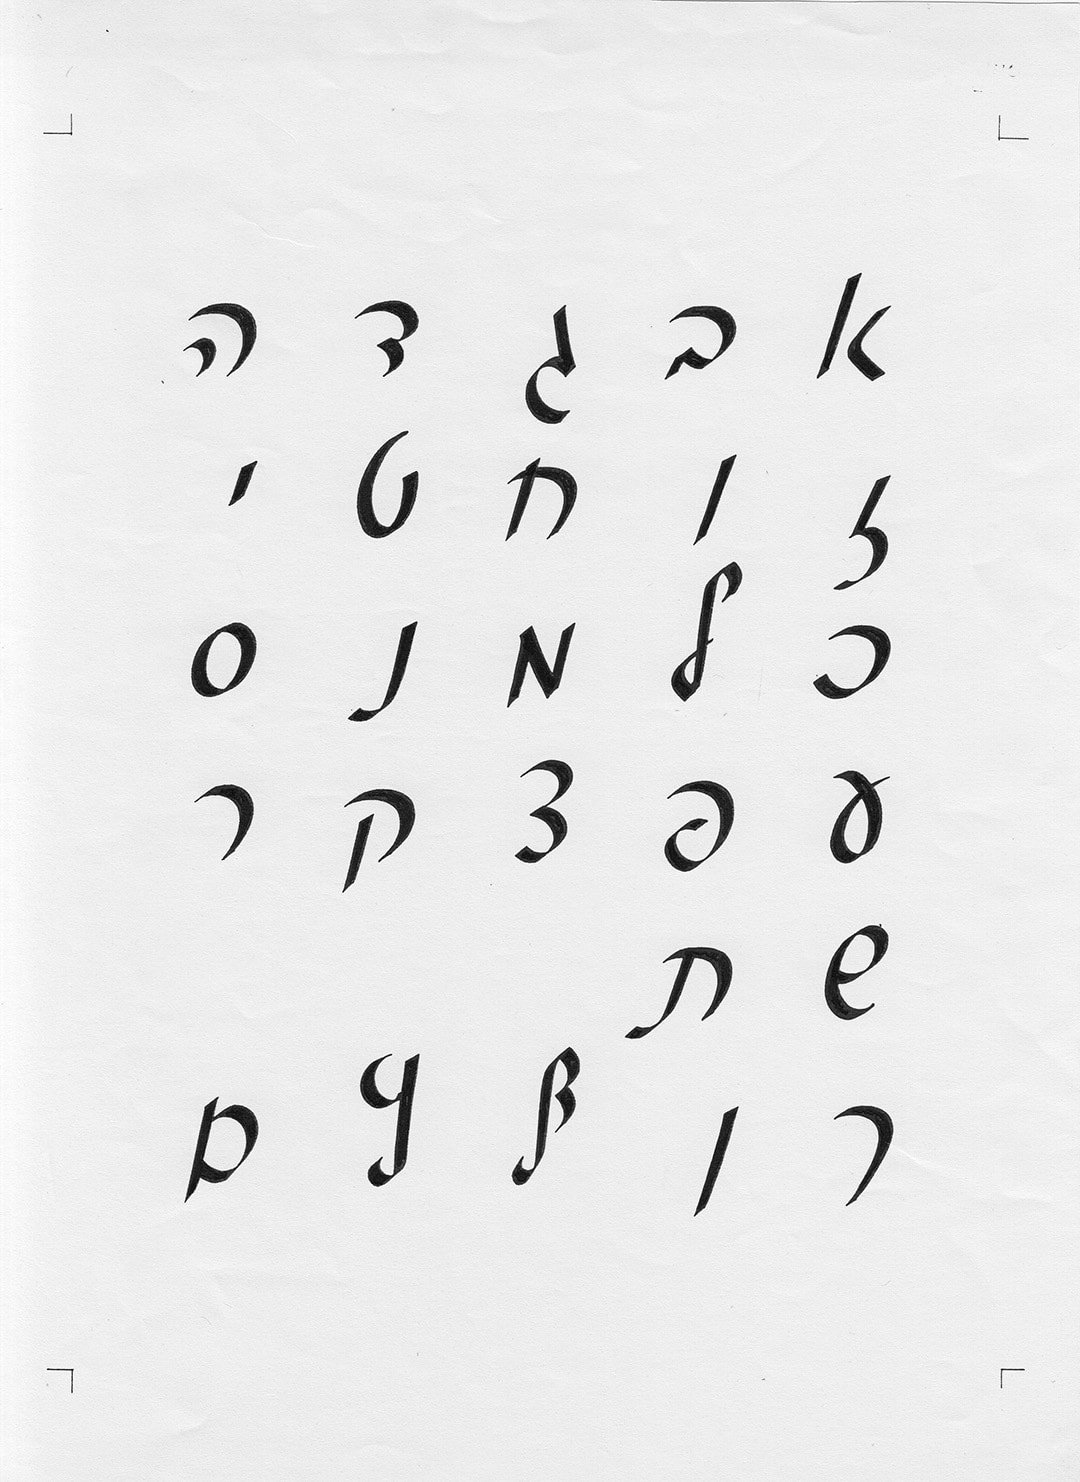 א ב ג ד ה
ז ו ח ט י
כ ל מ נ ס
ע פ צ ק ר
ש ת
ך ן ץ ף ם